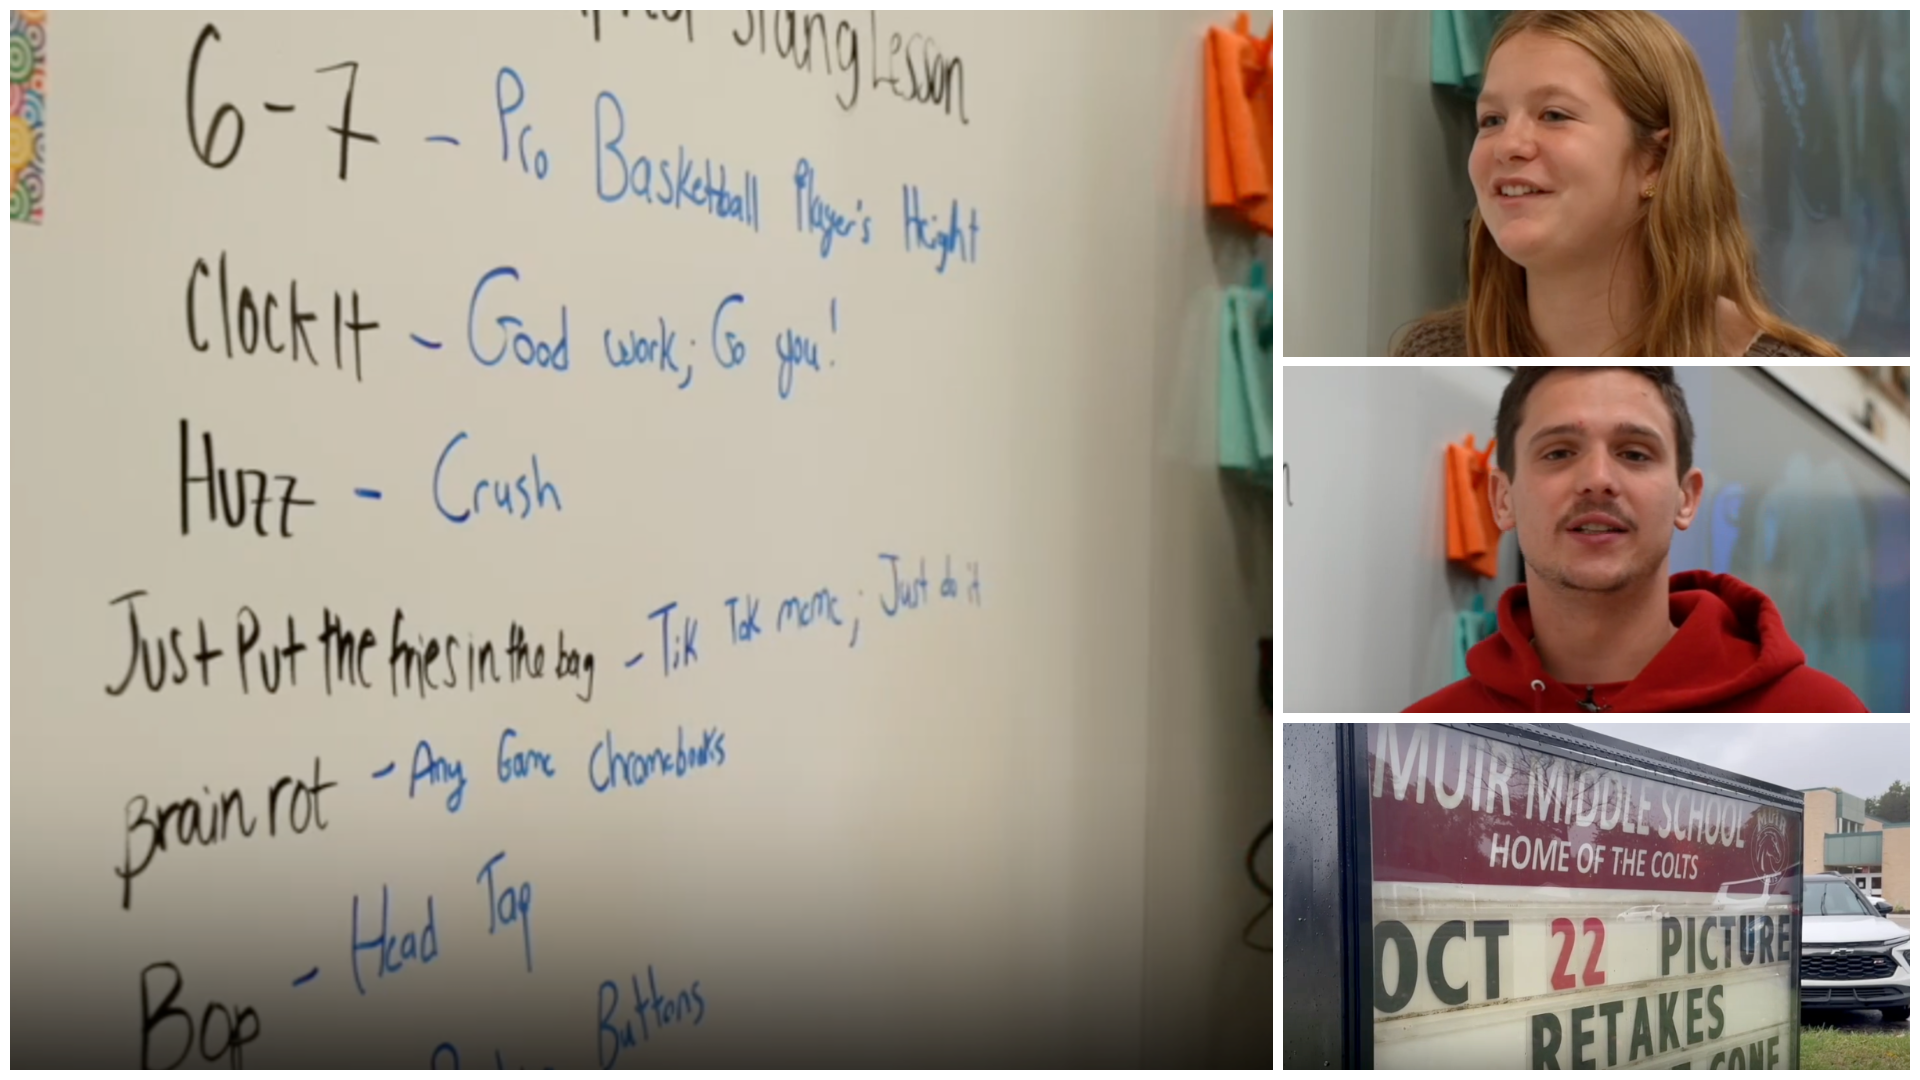 Slang Lesson
6-7 - Pro Basketball Player's Height
Clock It - Good work; Go you!
Huzz - Crush
Just Put the fries in the bag - Tik Tok meme; Just do it
Brain rot - Any Game Chromebooks
Bop - Head Tap
Buttons
MUIR MIDDLE SCHOOL
HOME OF THE COLTS
MUIR
OCT 22 PICTURE
RETAKES